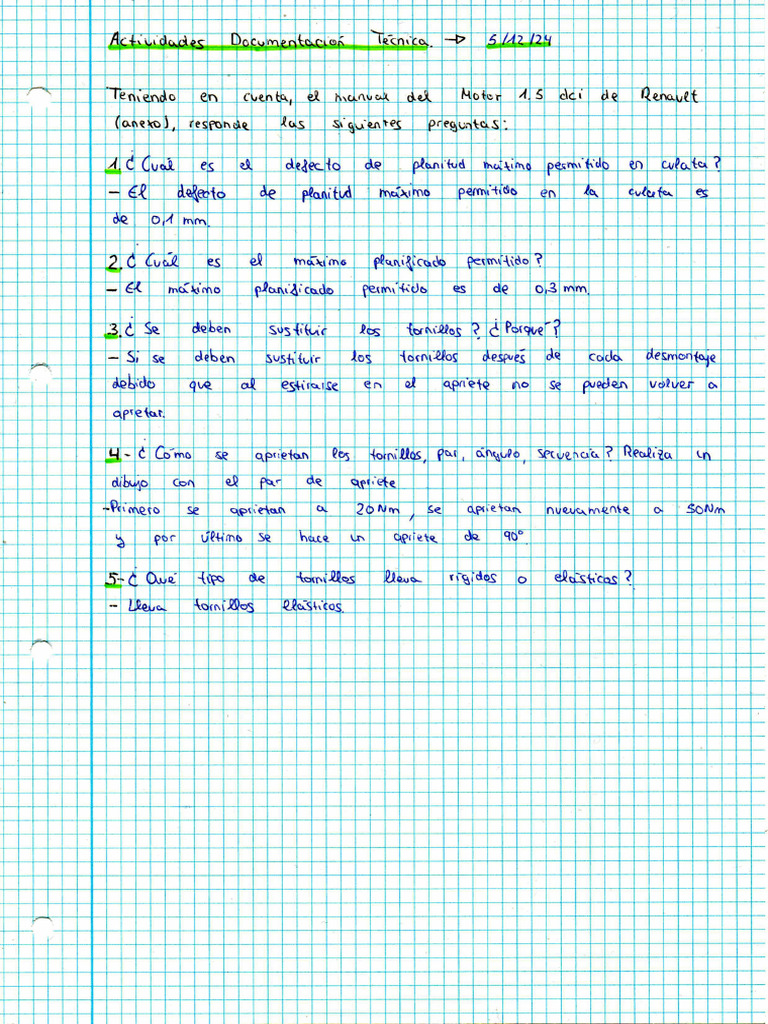 Actividades Documentación Técnica. → 5/12/24
Teniendo en cuenta, el manual del Motor 1.5 dci de Renault
(anexo), responde las siguientes preguntas:
1.¿Cuál es el defecto de planitud máximo permitido en culata?
- El defecto de planitud máximo permitido en la culata es
de 0,1 mm.
2.¿Cuál es el máximo planificado permitido?
- El máximo planificado permitido es de 0,3 mm.
3.¿Se deben sustituir los tornillos? ¿Porqué?
- Si se deben sustituir los tornillos después de cada desmontaje
debido que al estirarse en el apriete no se pueden volver a
apretar.
4-¿Cómo se aprietan los tornillos, par, ángulo, secuencia? Realiza un
dibujo con el par de apriete
-Primero se aprietan a 20Nm, se aprietan nuevamente a 50Nm
y por último se hace un apriete de 90°
5-¿Qué tipo de tornillos lleva rígidos o elásticos?
- Lleva tornillos elásticos.